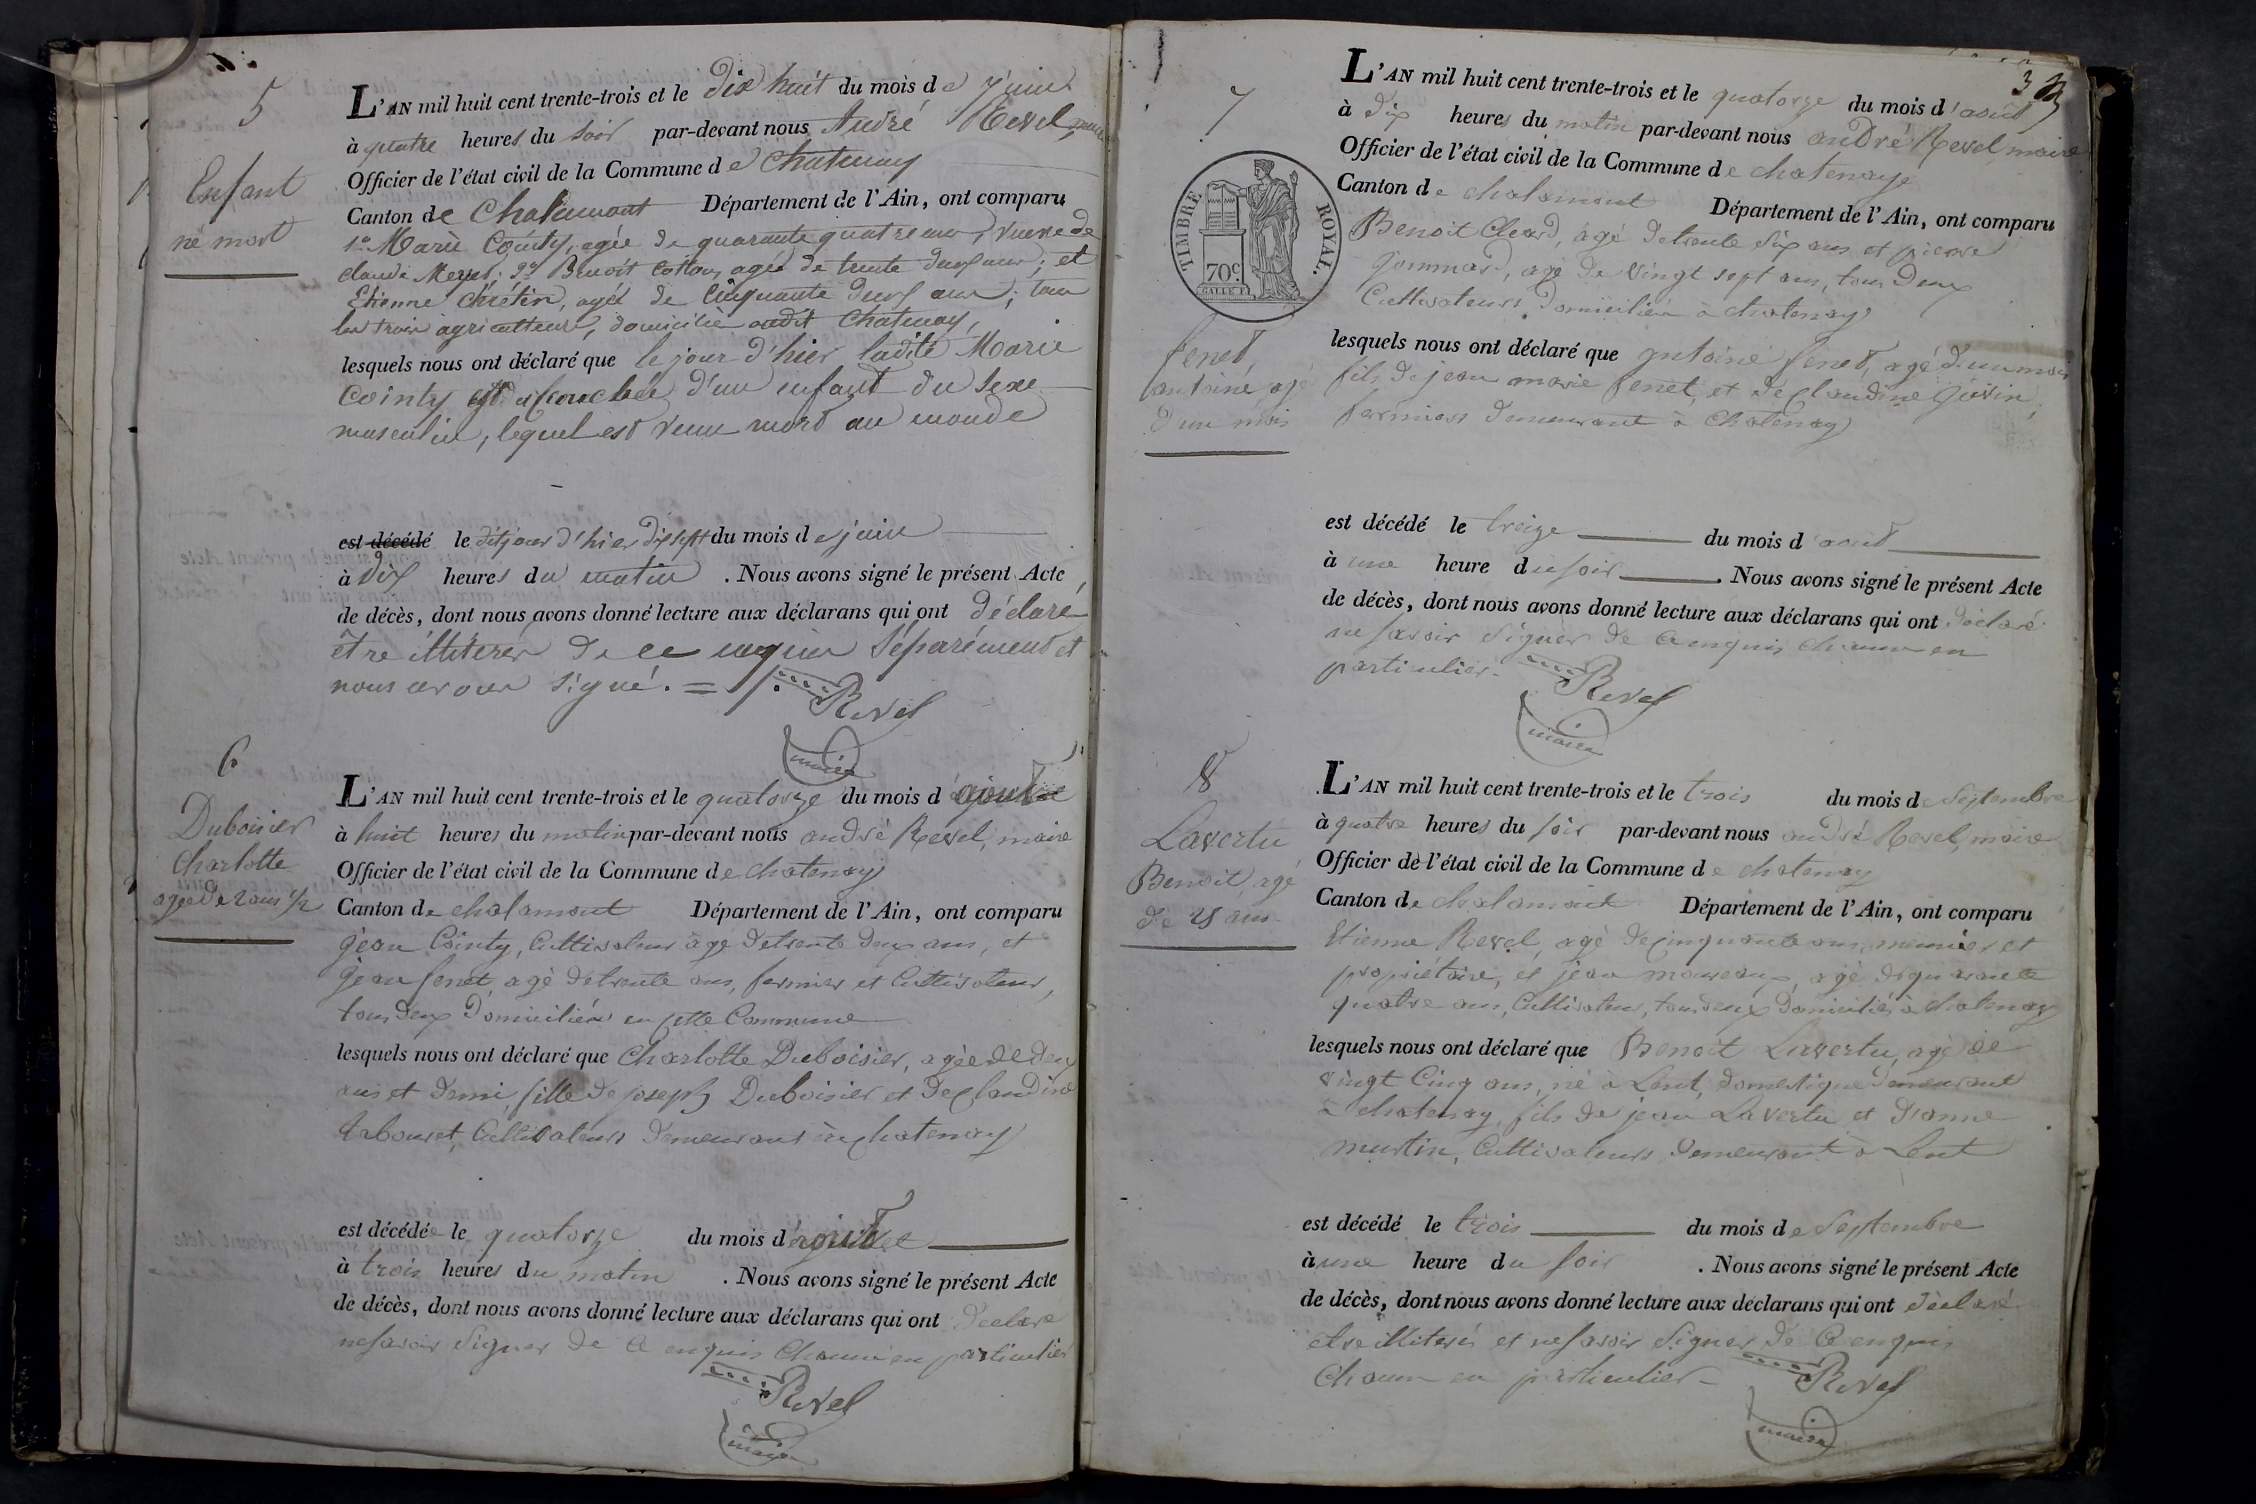 5
Enfant
né mort
L'AN mil huit cent trente-trois et le dix huit du mois de juin
à quatre heures du soir par-devant nous André Revel, maire
Officier de l'état civil de la Commune de Chatenay
Canton de Chalamont Département de l'Ain, ont comparu
1º Marie Cointy, agée de quarante quatre ans, veuve de
claude 2º Benoit agé de trente deux ans; et
Etienne Chrétin, agé de Cinquante deux ans; tous
les trois agriculteurs, domiciliés audit Chatenay,
lesquels nous ont déclaré que le jour d'hier ladite Marie
Cointy est accouchée d'un enfant du sexe
masculin, lequel est venu mort au monde
est décédé le dit jour d'hier dix sept du mois de juin
à dix heures du matin. Nous avons signé le présent Acte
de décès, dont nous avons donné lecture aux déclarans qui ont déclaré
être illitérés de ce enquis séparément et
nous avons signé. =
Revel
maire
6
Duboisier
Charlotte
agée de 2 ans 1/2
L'AN mil huit cent trente-trois et le quatorze du mois d'août
à huit heures du matin par-devant nous andré Revel, maire
Officier de l'état civil de la Commune de chatenay
Canton de chalamont Département de l'Ain, ont comparu
jean Cointy, Cultivateur agé de trente deux ans, et
jean fenet, agé de trente ans, fermier et Cultivateur,
tous deux Domiciliés en cette Commune
lesquels nous ont déclaré que Charlotte Duboisier, agée de deux
ans et demi, fille de joseph Duboisier et de claudine
Arbouret, Cultivateurs demeurant à chatenay
est décédée le quatorze du mois d'août
à trois heures du matin. Nous avons signé le présent Acte
de décès, dont nous avons donné lecture aux déclarans qui ont déclaré
ne savoir signer de ce enquis chacun en particulier
Revel
maire
3
7
TIMBRE ROYAL.
70c.
fenet,
antoine agé
d'un mois
L'AN mil huit cent trente-trois et le quatorze du mois d'août
à dix heures du matin par-devant nous andré Revel maire
Officier de l'état civil de la Commune de chatenay
Canton de chalamont Département de l'Ain, ont comparu
Benoit Cleard, agé de trente six ans et pierre
jommard, agé de vingt sept ans, tous deux
Cultivateurs, domiciliés à chatenay
lesquels nous ont déclaré que antoine fenet, agé d'un mois
fils de jean marie fenet, et de claudine
fermiers demeurant à Chatenay
est décédé le treize du mois d'août
à une heure du soir. Nous avons signé le présent Acte
de décès, dont nous avons donné lecture aux déclarans qui ont déclaré
ne savoir signer de ce enquis chacun en
particulier.
Revel
maire
8
Lavertu
Benoit, agé
de 25 ans
L'AN mil huit cent trente-trois et le trois du mois de Septembre
à quatre heures du soir par-devant nous andré Revel, maire
Officier de l'état civil de la Commune de chatenay
Canton de chalamont Département de l'Ain, ont comparu
Etienne Revel, agé de cinquante ans, meunier et
propriétaire, et jean moureaux, agé de quarante
quatre ans, Cultivateur, tous deux domiciliés à chatenay
lesquels nous ont déclaré que Benoit Lavertu, agé de
vingt Cinq ans, né à Lent, domestique demeurant
à chatenay, fils de jean Lavertu et d'anne
martin, Cultivateurs demeurant à Lent
est décédé le trois du mois de Septembre
à une heure du soir. Nous avons signé le présent Acte
de décès, dont nous avons donné lecture aux déclarans qui ont déclaré
etre illiterés et ne savoir signer de Ce enquis
Chacun en particulier
Revel
maire